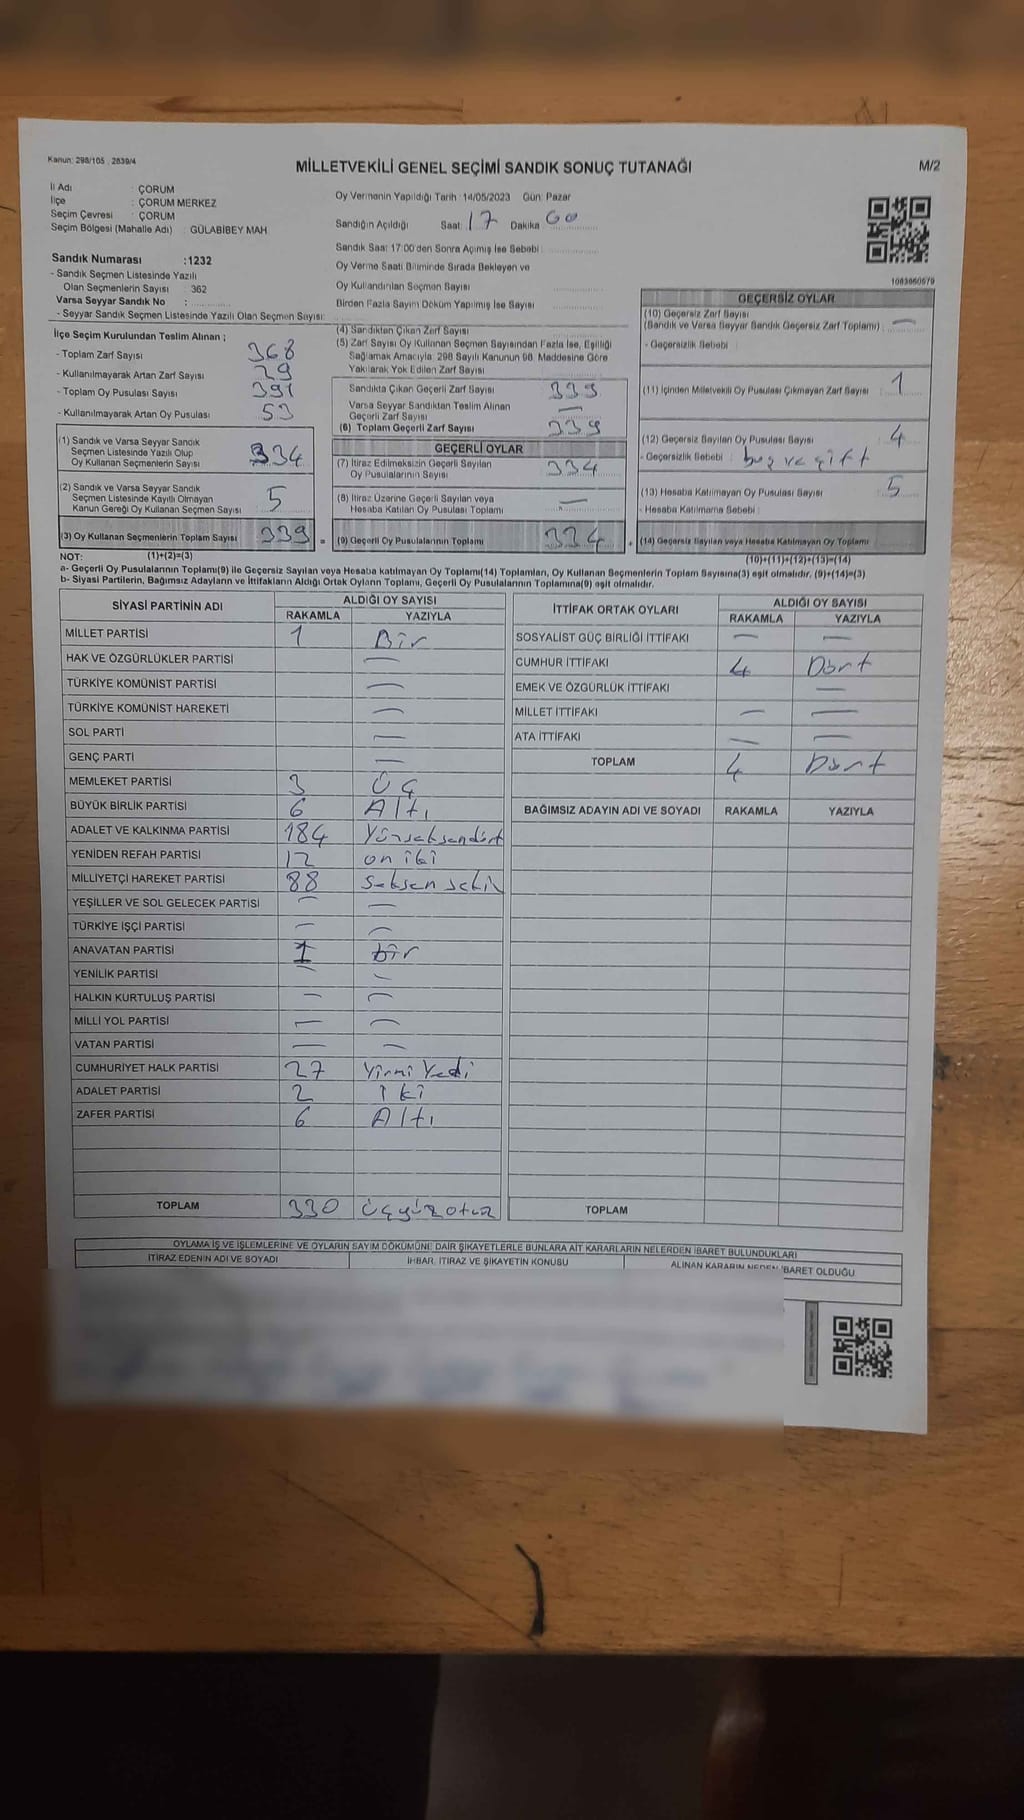 Kanun: 298/105 , 2839/4
MİLLETVEKİLİ GENEL SEÇİMİ SANDIK SONUÇ TUTANAĞI
M/2
İl Adı : ÇORUM
İlçe : ÇORUM MERKEZ
Seçim Çevresi : ÇORUM
Seçim Bölgesi (Mahalle Adı) : GÜLABİBEY MAH
Sandık Numarası :1232
- Sandık Seçmen Listesinde Yazılı
Olan Seçmenlerin Sayısı : 362
Varsa Seyyar Sandık No :
- Seyyar Sandık Seçmen Listesinde Yazılı Olan Seçmen Sayısı:
Oy Vermenin Yapıldığı Tarih : 14/05/2023 Gün: Pazar
Sandığın Açıldığı Saat: 17 Dakika 00
Sandık Saat 17:00'den Sonra Açılmış İse Sebebi :
Oy Verme Saati Bitiminde Sırada Bekleyen ve
Oy Kullandırılan Seçmen Sayısı
Birden Fazla Sayım Döküm Yapılmış İse Sayısı
1083860579
İlçe Seçim Kurulundan Teslim Alınan ;
- Toplam Zarf Sayısı 368
- Kullanılmayarak Artan Zarf Sayısı 29
- Toplam Oy Pusulası Sayısı 391
- Kullanılmayarak Artan Oy Pusulası 53
(1) Sandık ve Varsa Seyyar Sandık
Seçmen Listesinde Yazılı Olup
Oy Kullanan Seçmenlerin Sayısı 334
(2) Sandık ve Varsa Seyyar Sandık
Seçmen Listesinde Kayıtlı Olmayan
Kanun Gereği Oy Kullanan Seçmen Sayısı 5
(3) Oy Kullanan Seçmenlerin Toplam Sayısı 339 =
(4) Sandıktan Çıkan Zarf Sayısı
(5) Zarf Sayısı Oy Kullanan Seçmen Sayısından Fazla İse, Eşitliği
Sağlamak Amacıyla; 298 Sayılı Kanunun 98. Maddesine Göre
Yakılarak Yok Edilen Zarf Sayısı
Sandıkta Çıkan Geçerli Zarf Sayısı 339
Varsa Seyyar Sandıktan Teslim Alınan
Geçerli Zarf Sayısı —
(6) Toplam Geçerli Zarf Sayısı 339
GEÇERLİ OYLAR
(7) İtiraz Edilmeksizin Geçerli Sayılan
Oy Pusulalarının Sayısı 334
(8) İtiraz Üzerine Geçerli Sayılan veya
Hesaba Katılan Oy Pusulası Toplamı —
(9) Geçerli Oy Pusulalarının Toplamı 334 +
GEÇERSİZ OYLAR
(10) Geçersiz Zarf Sayısı
(Sandık ve Varsa Seyyar Sandık Geçersiz Zarf Toplamı) : —
- Geçersizlik Sebebi :
(11) İçinden Milletvekili Oy Pusulası Çıkmayan Zarf Sayısı 1
(12) Geçersiz Sayılan Oy Pusulası Sayısı 4
- Geçersizlik Sebebi : boş ve çift
(13) Hesaba Katılmayan Oy Pusulası Sayısı 5
- Hesaba Katılmama Sebebi :
(14) Geçersiz Sayılan veya Hesaba Katılmayan Oy Toplamı
NOT: (1)+(2)=(3)
(10)+(11)+(12)+(13)=(14)
a- Geçerli Oy Pusulalarının Toplamı(9) ile Geçersiz Sayılan veya Hesaba katılmayan Oy Toplamı(14) Toplamları, Oy Kullanan Seçmenlerin Toplam Sayısına(3) eşit olmalıdır. (9)+(14)=(3)
b- Siyasi Partilerin, Bağımsız Adayların ve İttifakların Aldığı Ortak Oyların Toplamı, Geçerli Oy Pusulalarının Toplamına(9) eşit olmalıdır.
SİYASİ PARTİNİN ADI ALDIĞI OY SAYISI
RAKAMLA YAZIYLA
MİLLET PARTİSİ 1 Bir
HAK VE ÖZGÜRLÜKLER PARTİSİ —
TÜRKİYE KOMÜNİST PARTİSİ —
TÜRKİYE KOMÜNİST HAREKETİ —
SOL PARTİ —
GENÇ PARTİ —
MEMLEKET PARTİSİ 3 Üç
BÜYÜK BİRLİK PARTİSİ 6 Altı
ADALET VE KALKINMA PARTİSİ 184 Yüzseksendört
YENİDEN REFAH PARTİSİ 12 on iki
MİLLİYETÇİ HAREKET PARTİSİ 88 Seksen sekiz
YEŞİLLER VE SOL GELECEK PARTİSİ — —
TÜRKİYE İŞÇİ PARTİSİ — —
ANAVATAN PARTİSİ 1 bir
YENİLİK PARTİSİ — —
HALKIN KURTULUŞ PARTİSİ — —
MİLLİ YOL PARTİSİ — —
VATAN PARTİSİ — —
CUMHURİYET HALK PARTİSİ 27 Yirmi Yedi
ADALET PARTİSİ 2 iki
ZAFER PARTİSİ 6 Altı
TOPLAM 330 Üçyüz otuz
İTTİFAK ORTAK OYLARI ALDIĞI OY SAYISI
RAKAMLA YAZIYLA
SOSYALİST GÜÇ BİRLİĞİ İTTİFAKI — —
CUMHUR İTTİFAKI 4 Dört
EMEK VE ÖZGÜRLÜK İTTİFAKI —
MİLLET İTTİFAKI — —
ATA İTTİFAKI — —
TOPLAM 4 Dört
BAĞIMSIZ ADAYIN ADI VE SOYADI RAKAMLA YAZIYLA
TOPLAM
OYLAMA İŞ VE İŞLEMLERİNE VE OYLARIN SAYIM DÖKÜMÜNE DAİR ŞİKAYETLERLE BUNLARA AİT KARARLARIN NELERDEN İBARET BULUNDUKLARI
İTİRAZ EDENİN ADI VE SOYADI İHBAR, İTİRAZ VE ŞİKAYETİN KONUSU ALINAN KARARIN NEDEN İBARET OLDUĞU